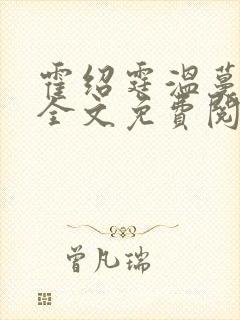 霍绍霆温蔓
全文免费阅
曾凡瑞